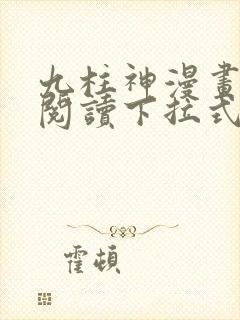 九柱神漫畫
閱讀下拉式
霍頓